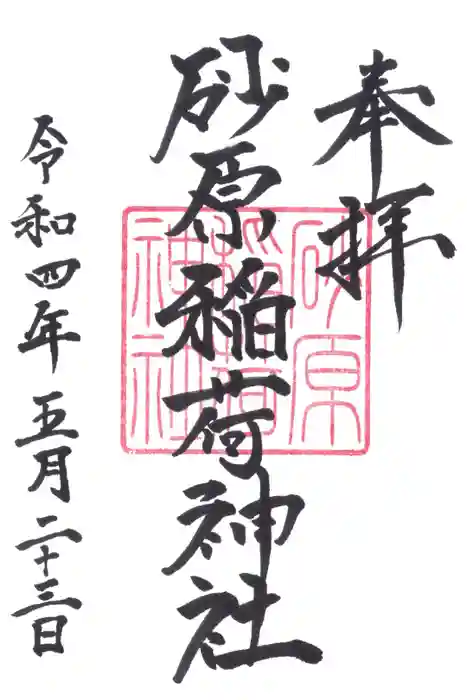 奉拝
砂原稲荷神社
砂原
稲荷
神社
令和四年五月二十三日